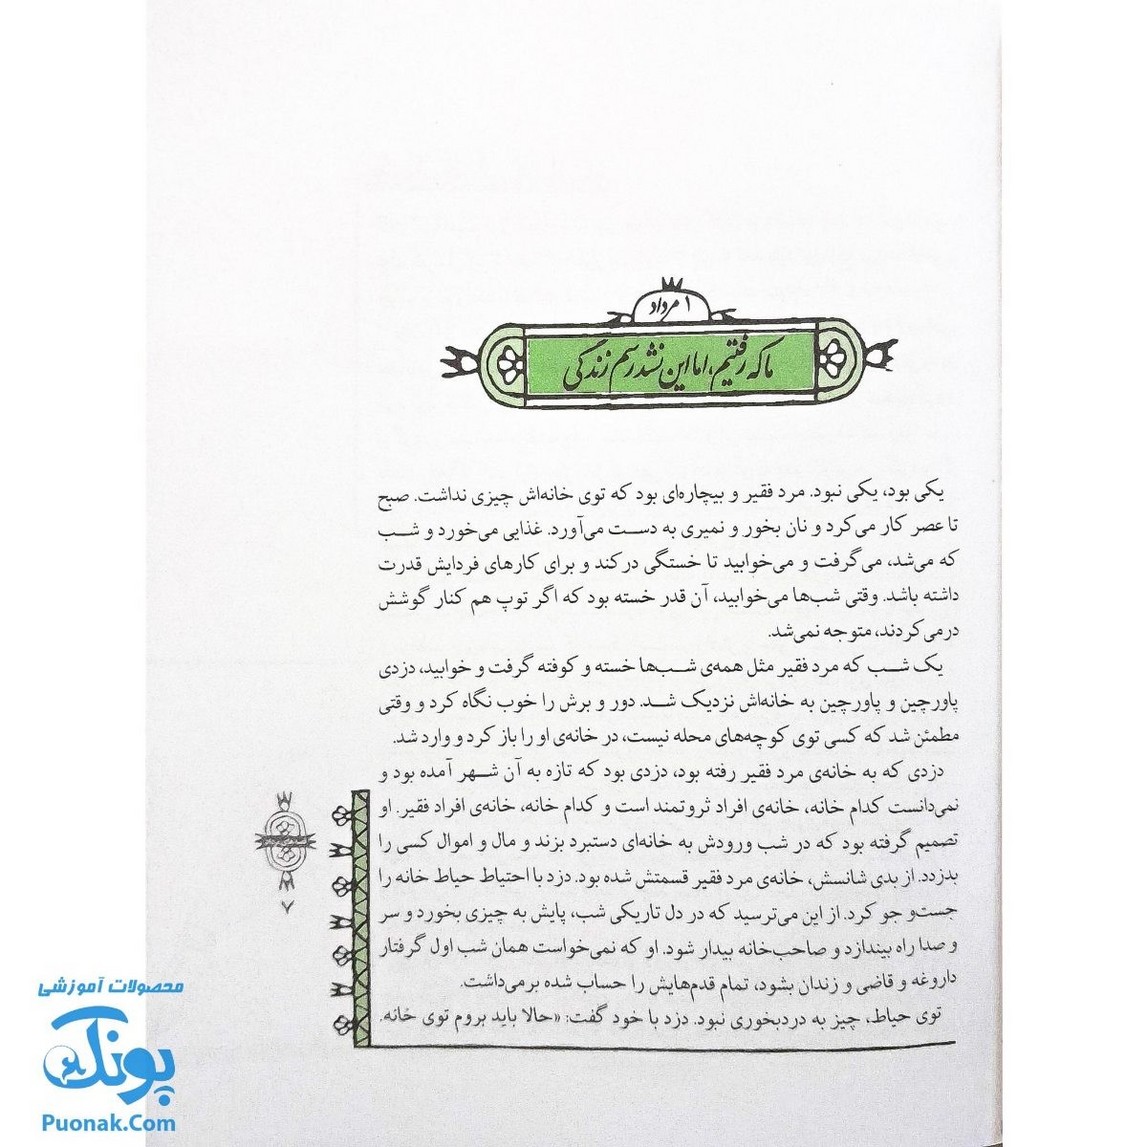 ۱ مرداد
ما که رفتیم، اما این نشد رسم زندگی
یکی بود، یکی نبود. مرد فقیر و بیچاره‌ای بود که توی خانه‌اش چیزی نداشت. صبح
تا عصر کار می‌کرد و نان بخور و نمیری به دست می‌آورد. غذایی می‌خورد و شب
که می‌شد، می‌گرفت و می‌خوابید تا خستگی درکند و برای کارهای فردایش قدرت
داشته باشد. وقتی شب‌ها می‌خوابید، آن قدر خسته بود که اگر توپ هم کنار گوشش
درمی‌کردند، متوجه نمی‌شد.
یک شب که مرد فقیر مثل همه‌ی شب‌ها خسته و کوفته گرفت و خوابید، دزدی
پاورچین و پاورچین به خانه‌اش نزدیک شد. دور و برش را خوب نگاه کرد و وقتی
مطمئن شد که کسی توی کوچه‌های محله نیست، در خانه‌ی او را باز کرد و وارد شد.
دزدی که به خانه‌ی مرد فقیر رفته بود، دزدی بود که تازه به آن شهر آمده بود و
نمی‌دانست کدام خانه، خانه‌ی افراد ثروتمند است و کدام خانه، خانه‌ی افراد فقیر. او
تصمیم گرفته بود که در شب ورودش به خانه‌ای دستبرد بزند و مال و اموال کسی را
بدزدد. از بدی شانسش، خانه‌ی مرد فقیر قسمتش شده بود. دزد با احتیاط حیاط خانه را
جست‌و جو کرد. از این می‌ترسید که در دل تاریکی شب، پایش به چیزی بخورد و سر
و صدا راه بیندازد و صاحب‌خانه بیدار شود. او که نمی‌خواست همان شب اول گرفتار
داروغه و قاضی و زندان بشود، تمام قدم‌هایش را حساب شده برمی‌داشت.
توی حیاط، چیز به دردبخوری نبود. دزد با خود گفت: «حالا باید بروم توی خانه.
۷
محصولات آموزشی
پونک
Puonak.Com